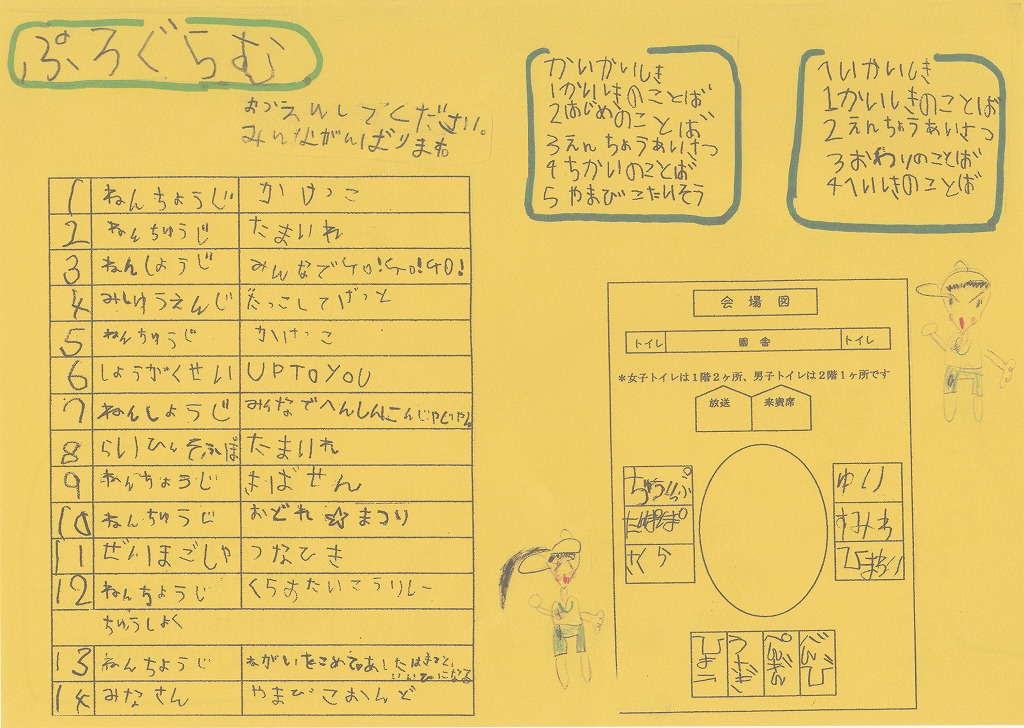 ぷろぐらむ
おうえんしてください。
みんながんばります。
1 ねんちょうじ かけっこ
2 ねんちゅうじ たまいれ
3 ねんしょうじ みんなでGO!GO!GO!
4 みしゅうえんじ だっこしてげっと
5 ねんちゅうじ かけっこ
6 しょうがくせい UPTOYOU
7 ねんしょうじ みんなでへんしん
8 らいひん そふぼ たまいれ
9 ねんちょうじ きばせん
10 ねんちゅうじ おどれ☆まつり
11 ぜんいほごしゃ つなひき
12 ねんちょうじ くらすたいこうリレー
ちゅうしょく
13 ねんちょうじ ねがいをこめて あしたはきっと いいひになる
14 みなさん やまびこおんど
かいかいしき
1かいしきのことば
2はじめのことば
3えんちょうあいさつ
4ちかいのことば
5やまびこたいそう
へいかいしき
1かいしきのことば
2えんちょうあいさつ
3おわりのことば
4へいしきのことば
会場図
トイレ 園舎 トイレ
*女子トイレは1階2ヶ所、男子トイレは2階1ヶ所です
放送 来賓席
ちゅうりっぷ
たんぽぽ
さくら
ゆり
すみれ
ひまわり
ひよこ
うさぎ
ぺんぎん